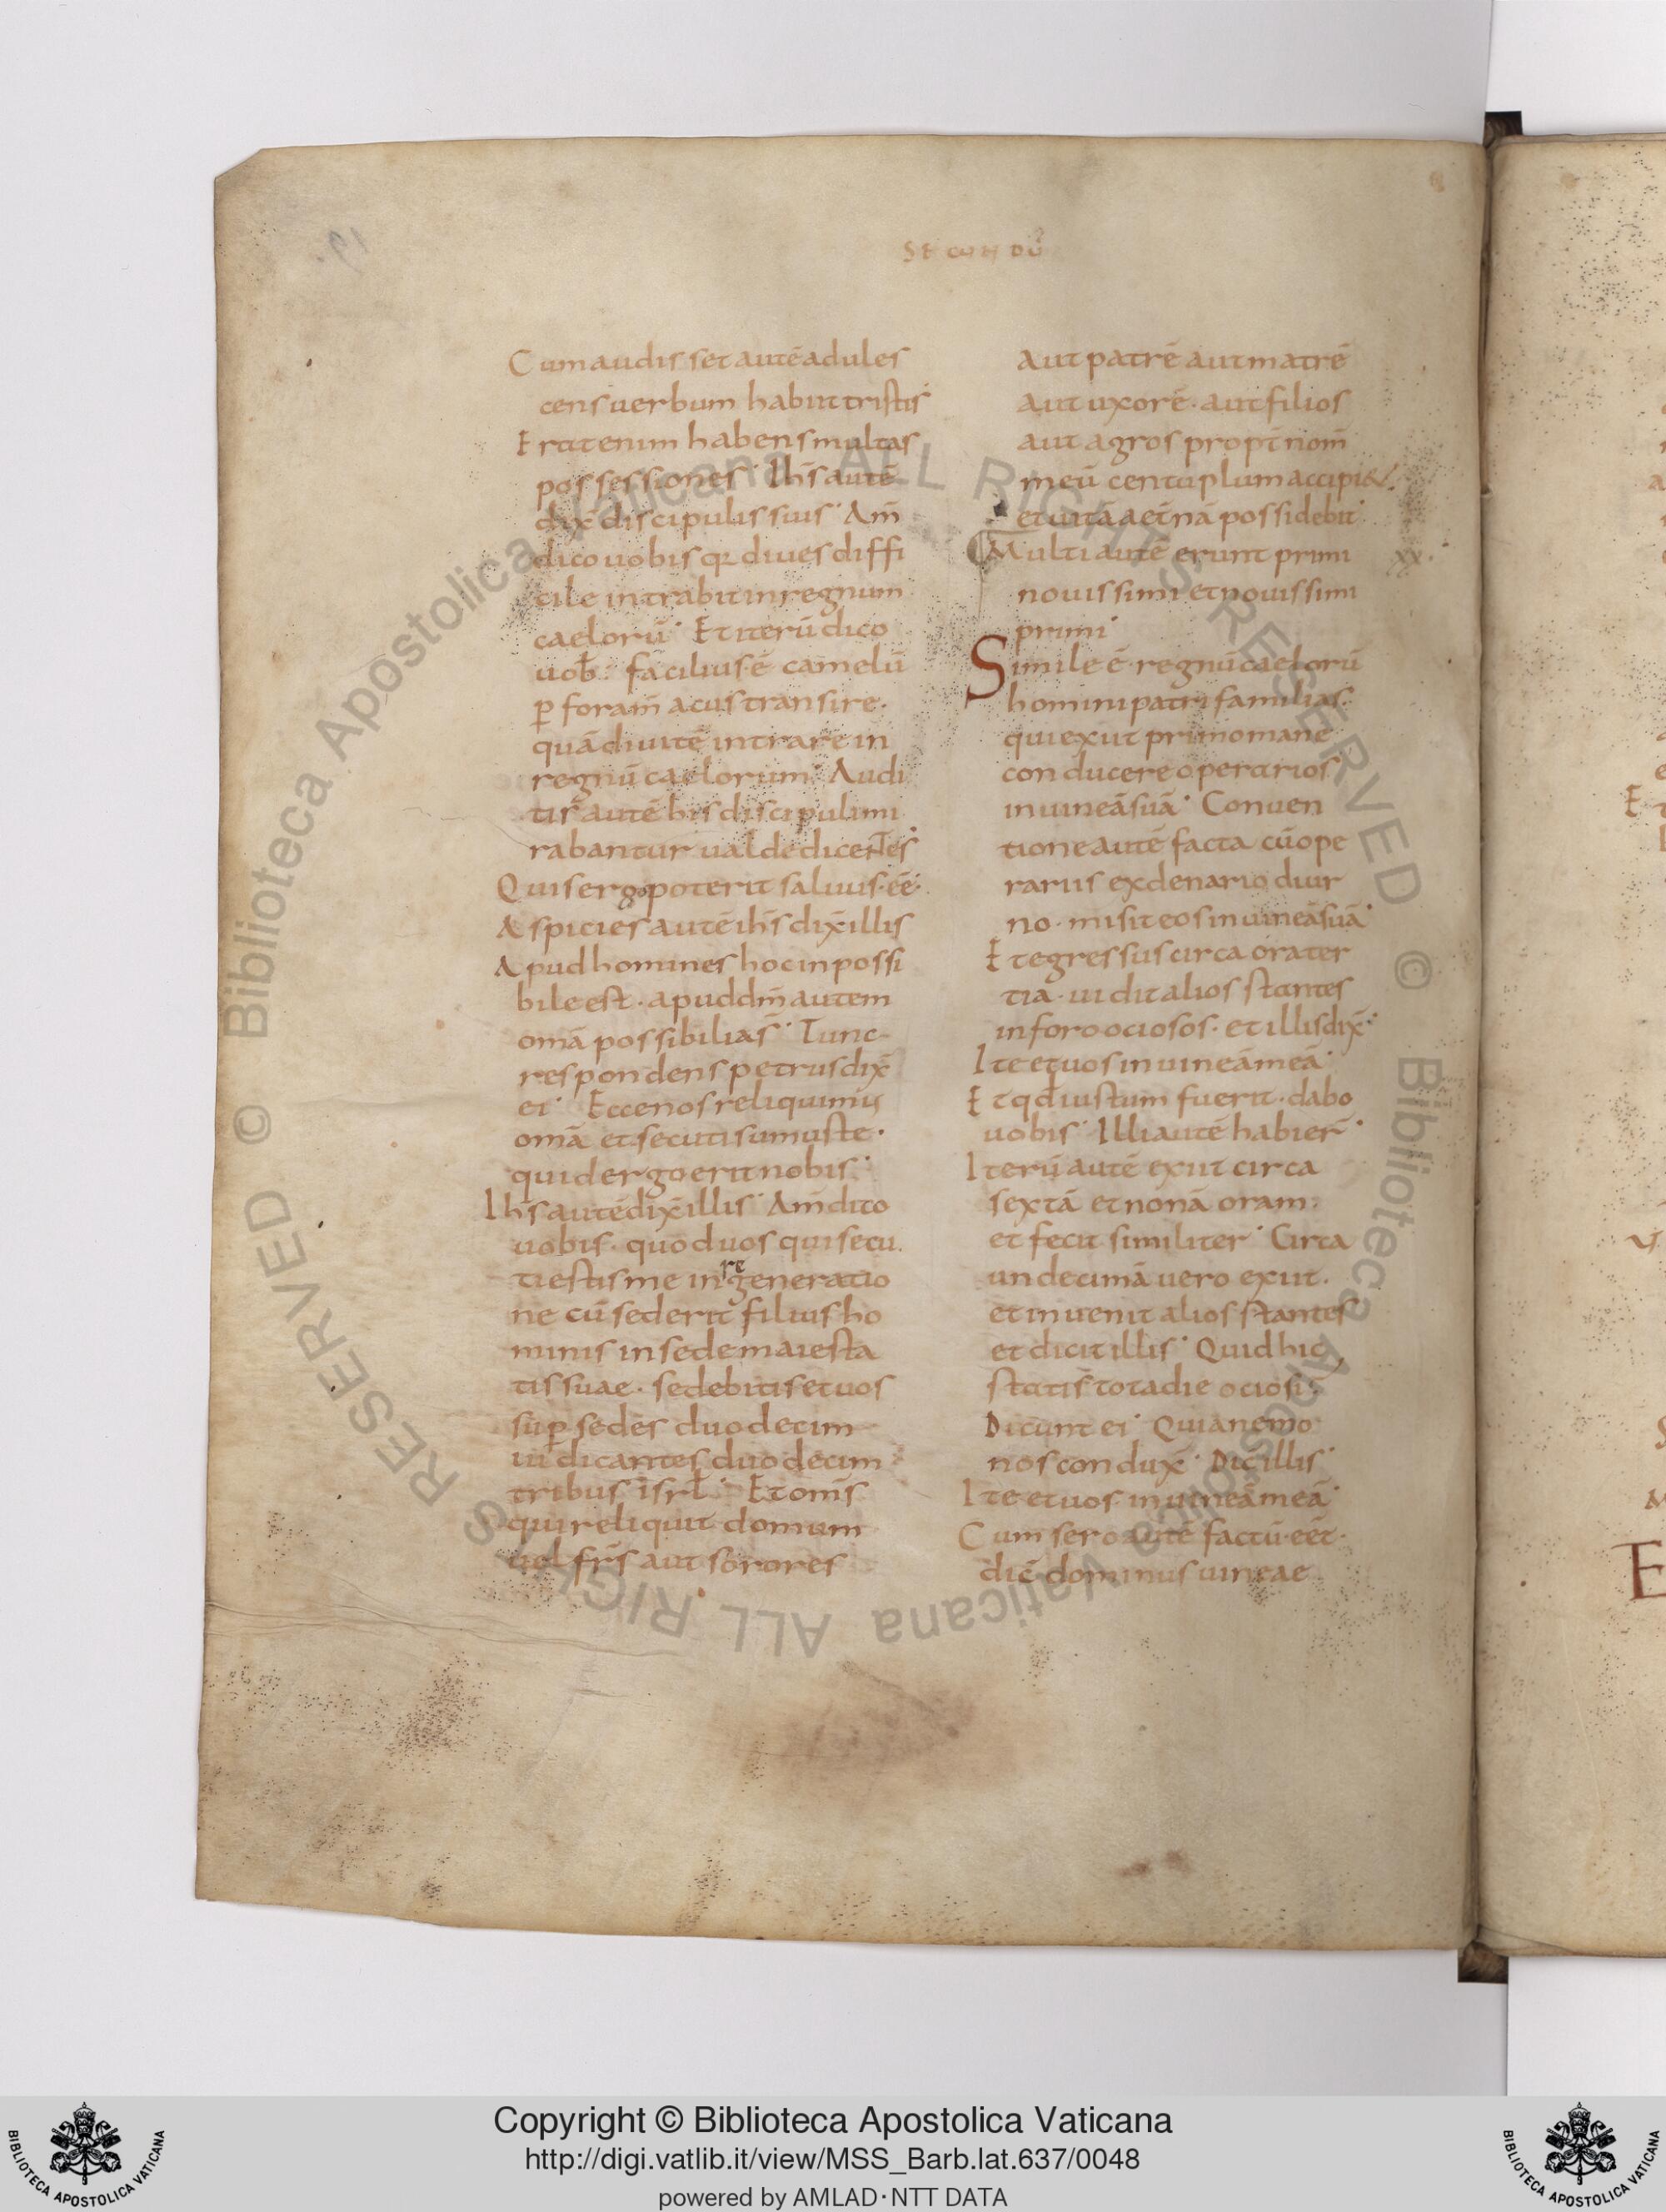 SECUNDŪ
Cum audisset autē adules
cens uerbum habiit tristis
Erat enim habens multas
possessiones · Ihs̄ autē
dix̄ discipulis suis · Am̄
dico uobis q; diues diffi
cile intrabit in regnum
caelorū · Et iterū dico
uob̄ · facilius ē camelū
ꝑ foram̄ acus transire ·
quā diuitē intrare in
regnū caelorum · Audi
tis autē his discipuli mi
rabantur ualde dicentes ·
Quis ergo poterit saluus eē ·
Aspicies autē ihs̄ dix̄ illis
Apud homines hoc inpossi
bile est · apud dm̄ autem
omā possibilia s̄ · Tunc
respondens petrus dix̄
ei · Ecce nos reliquimus
omā et secuti sumus te ·
quid ergo erit nobis ·
Ihs̄ autē dix̄ illis · Am̄ dico
uobis · quod uos qui secu
ti estis me in regeneratio
ne cū sederit filius ho
minis in sede maiesta
tis suae · sedebitis et uos
suꝑ sedes duodecim
iudicantes duodecim
tribus isrl̄ · Et omīs
qui reliquit domum
uel frs̄ aut sorores
aut patrē aut matrē
aut uxorē · aut filios
aut agros propt̄ nom̄
meū centuplum accipi&
et uitā aet̄nā possidebit ·
Multi autē erunt primi
xx ·
nouissimi et nouissimi
primi ·
Simile ē regnū caelorū
homini patri familias ·
qui exiit primo mane
conducere operarios
in uineā suā · Conuen
tione autē facta cū ope
rariis ex denario diur
no · misit eos in uineā suā ·
Et egressus circa ora ter
tia · uidit alios stantes
in foro ociosos · et illis dix̄ ·
Ite et uos in uineā meā ·
Et qd̄ iustum fuerit · dabo
uobis · Illi autē habier̄ ·
Iterū autē exiit circa
sextā et nonā oram ·
et fecit similiter · Circa
undecimā uero exiit ·
et inuenit alios stantes
et dicit illis · Quid hic
statis tota die ociosi ·
Dicunt ei · Quia nemo
nos condux̄ · Dic̄ illis ·
Ite et uos in uineā meā ·
Cum sero autē factū eēt ·
dic̄ dominus uineae
© Biblioteca Apostolica Vaticana ALL RIGHTS RESERVED
© Biblioteca Apostolica Vaticana ALL RIGHTS RESERVED
BIBLIOTECA APOSTOLICA VATICANA
Copyright © Biblioteca Apostolica Vaticana
http://digi.vatlib.it/view/MSS_Barb.lat.637/0048
powered by AMLAD·NTT DATA
BIBLIOTECA APOSTOLICA VATICANA